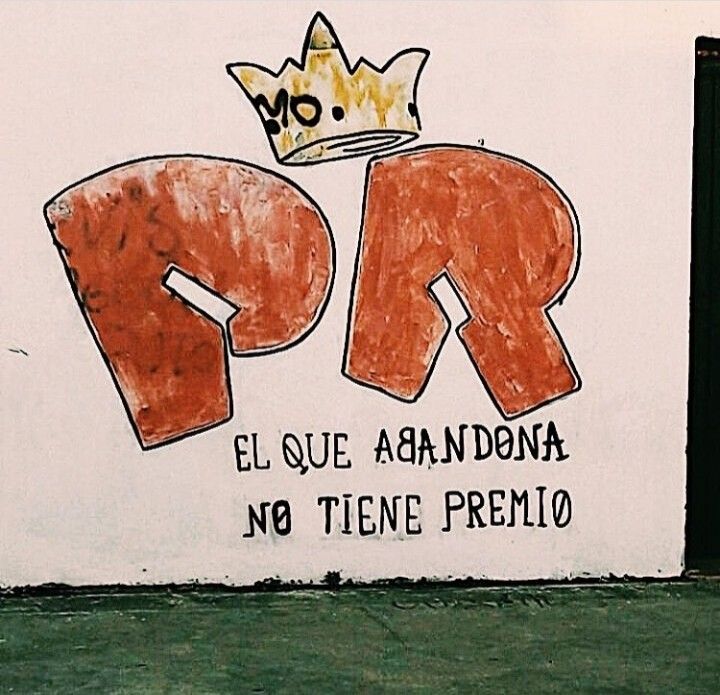 MO.
PR
EL QUE ABANDONA
NO TIENE PREMIO